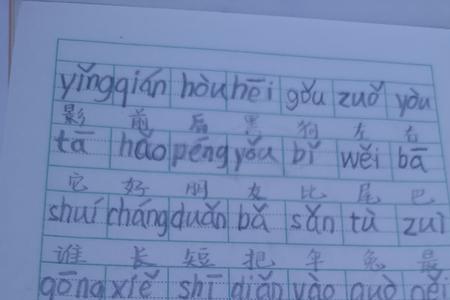 yǐng qián hòu hēi gǒu zuǒ yòu
影 前 后 黑 狗 左 右
tā hǎo péng yǒu bǐ wěi bā
它 好 朋 友 比 尾 巴
shuí cháng duǎn bǎ sǎn tù zuì
谁 长 短 把 伞 兔 最
gōng xiě shī diǎn yào guò